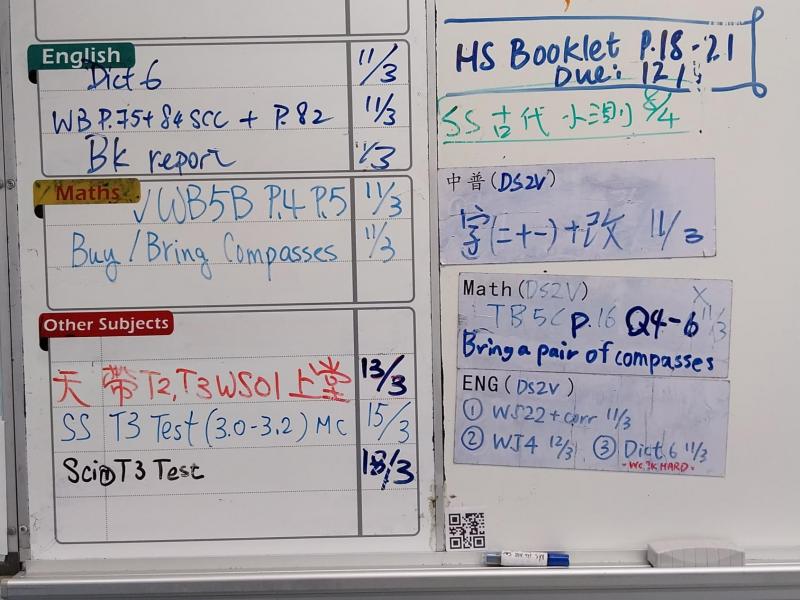 English
Dict 6 11/3
WB P.75+84 SCC + P.82 11/3
BK report 1/3
Maths
√WB5B P.4 P.5 11/3
Buy/Bring Compasses 11/3
Other Subjects
天 帶T2,T3WS01上堂 13/3
SS T3 Test (3.0-3.2) MC 15/3
Sci T3 Test 18/3
HS Booklet P.18-21
Due: 12/
SS 古代 小測 8/4
中普(DS2V)
字(二十一)+改 11/3
Math(DS2V) X
TB5C P.16 Q4-6 11/3
Bring a pair of compasses
ENG(DS2V)
① WS22+corr 11/3
② WJ4 12/3 ③ Dict.6 11/3
HARD